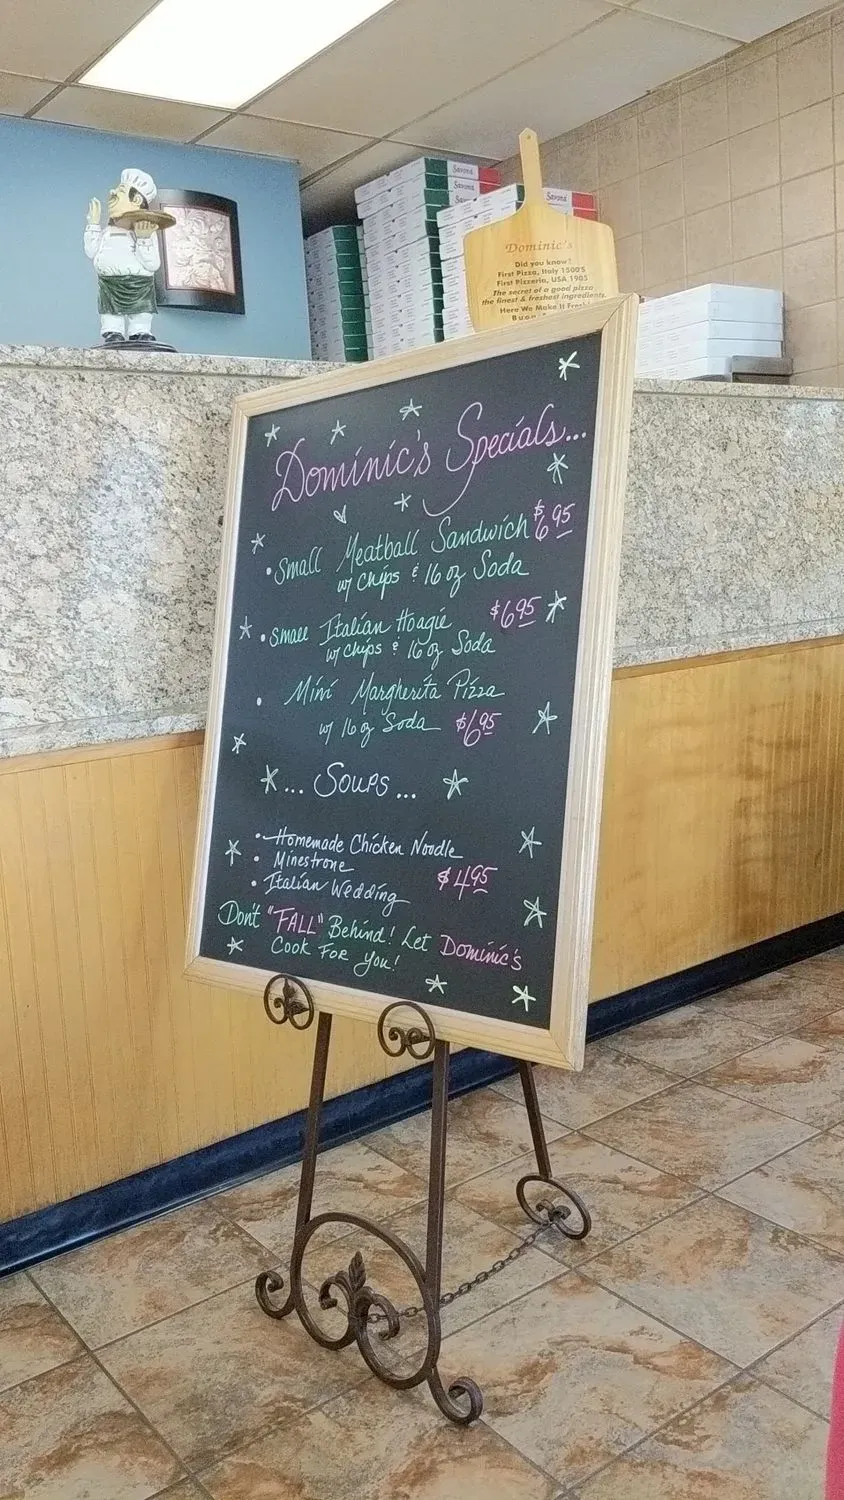 Savona
Savona
Savona
Savona
Dominic's
Did you know?
First Pizza, Italy 1500's
First Pizzeria, USA 1905
The secret of a good pizza
the finest & freshest ingredients.
Here We Make It Fresh!
Dominic's Specials...
• Small Meatball Sandwich $6.95
w/ Chips & 16 oz Soda
• Small Italian Hoagie $6.95
w/ chips & 16 oz Soda
• Mini Margherita Pizza
w/ 16 oz Soda $6.95
... Soups ...
• Homemade Chicken Noodle
• Minestrone
• Italian Wedding $4.95
Don't "FALL" Behind! Let Dominic's
Cook For You!